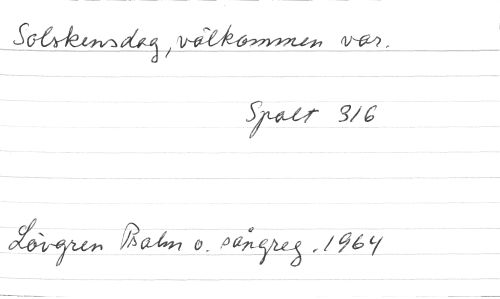 Solskensdag, välkommen var.
Spalt 316
Lövgren Psalm o. sångreg. 1964